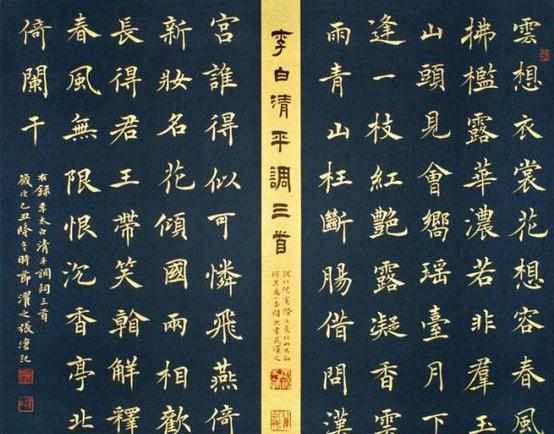 雲想衣裳花想容春風
拂檻露華濃若非羣玉
山頭見會嚮瑤臺月下
逢一枝紅艷露凝香雲
雨青山枉斷腸借問漢
李白清平調三首
宮誰得似可憐飛燕倚
新妝名花傾國兩相歡
長得君王帶笑解釋
春風無限恨沉香亭北
倚闌干
右録李太白清平調詞三首
歲次己丑時節記